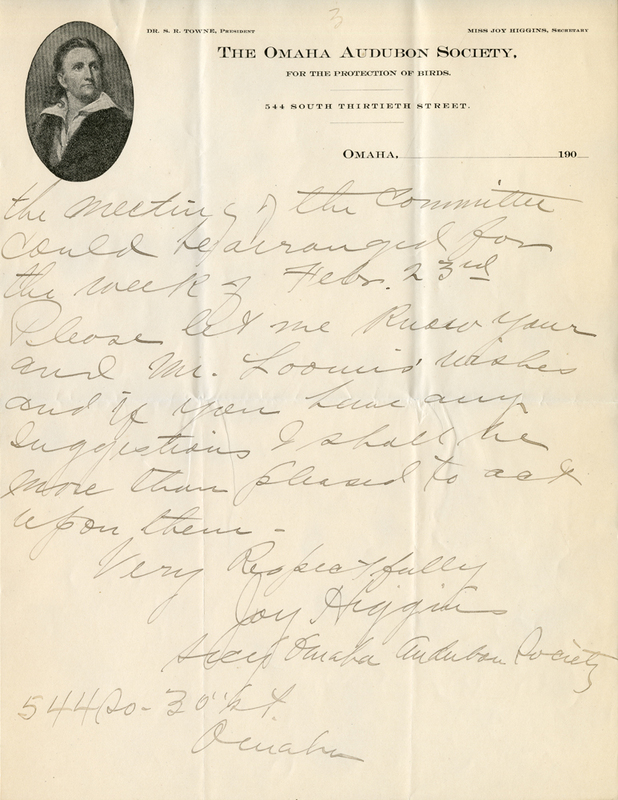 3
DR. S. R. TOWNE, PRESIDENT
MISS JOY HIGGINS, SECRETARY
THE OMAHA AUDUBON SOCIETY,
FOR THE PROTECTION OF BIRDS.
544 SOUTH THIRTIETH STREET.
OMAHA, 190
the meeting of the Committee
could be arranged for
the week of Febr. 23rd
Please let me know your
and Mr. Loomis' wishes
and if you have any
suggestions I shall be
more than pleased to act
upon them -
Very Respectfully
Joy Higgins
Secy Omaha Audubon Society
544 So - 30" St.
Omaha